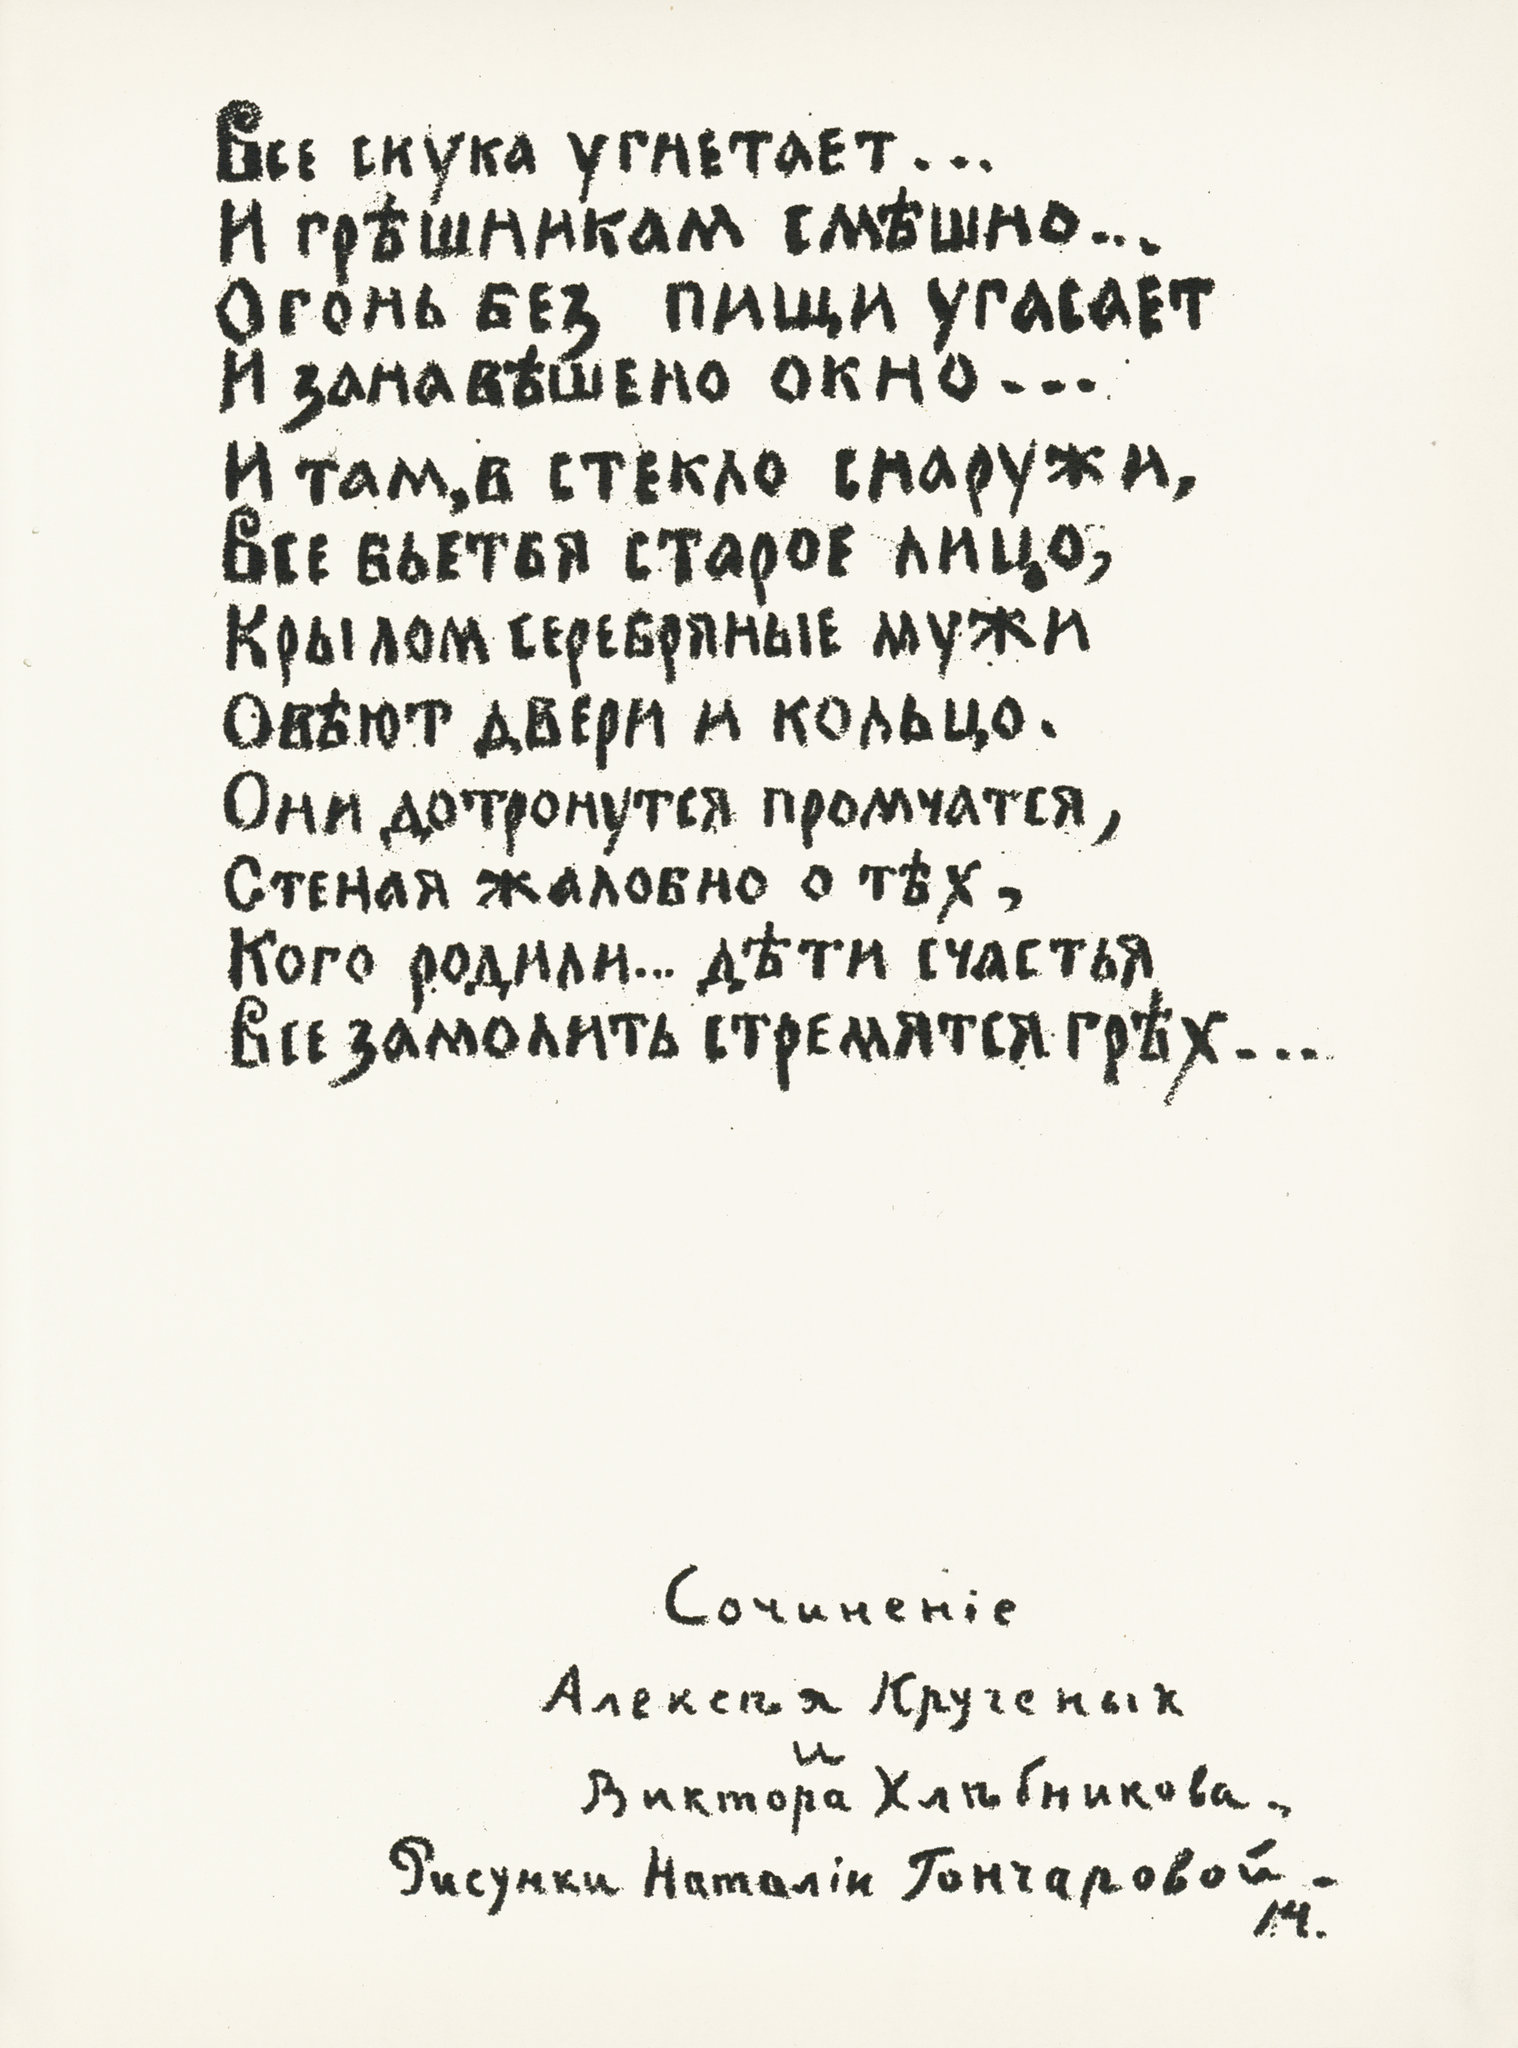 Все скука угнетает...
И грѣшникам смѣшно...
Огонь без пищи угасает
И занавѣшено окно...
И там, в стекло снаружи,
Все бьется старое лицо,
Крылом серебряные мужи
Овѣют двери и кольцо.
Они дотронутся промчатся,
Стеная жалобно о тѣх,
Кого родили... дѣти счастья
Все замолить стремятся грѣх...
Сочиненіе
Алексѣя Крученых
и
Виктора Хлѣбникова.
Рисунки Наталіи Гончаровой -
14.